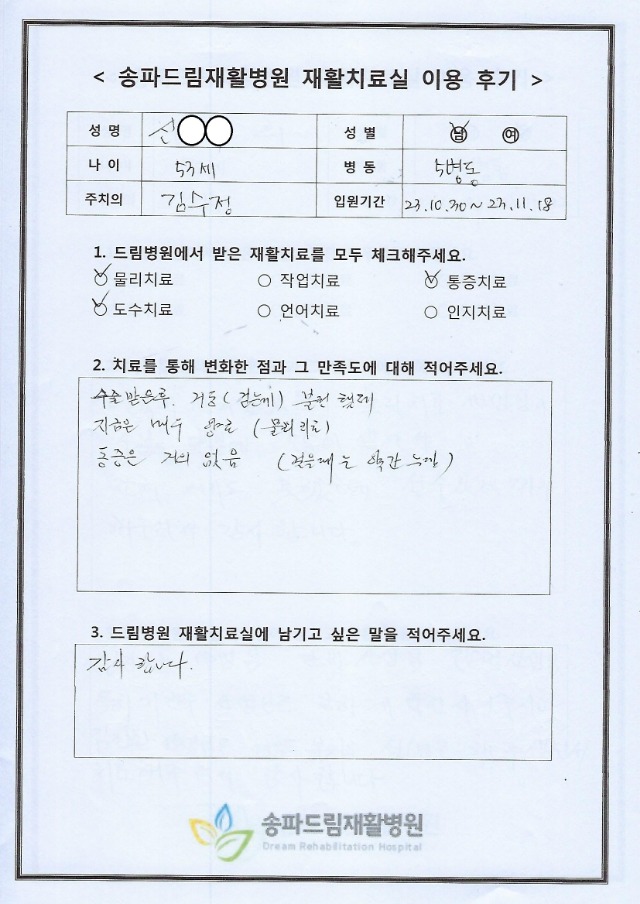 < 송파드림재활병원 재활치료실 이용 후기 >
성 명 선○○ 성 별 남 여
나 이 53세 병 동 5병동
주치의 김수정 입원기간 23.10.30 ~ 23.11.18
1. 드림병원에서 받은 재활치료를 모두 체크해주세요.
물리치료 ○ 작업치료 통증치료
도수치료 ○ 언어치료 ○ 인지치료
2. 치료를 통해 변화한 점과 그 만족도에 대해 적어주세요.
수술 받은후. 거동( 걷는게) 불편 했는데
지금은 매우 양호 (물리치료)
통증은 거의 없음 (걸을때는 약간 느낌)
3. 드림병원 재활치료실에 남기고 싶은 말을 적어주세요.
감사 합니다.
송파드림재활병원
Dream Rehabilitation Hospital